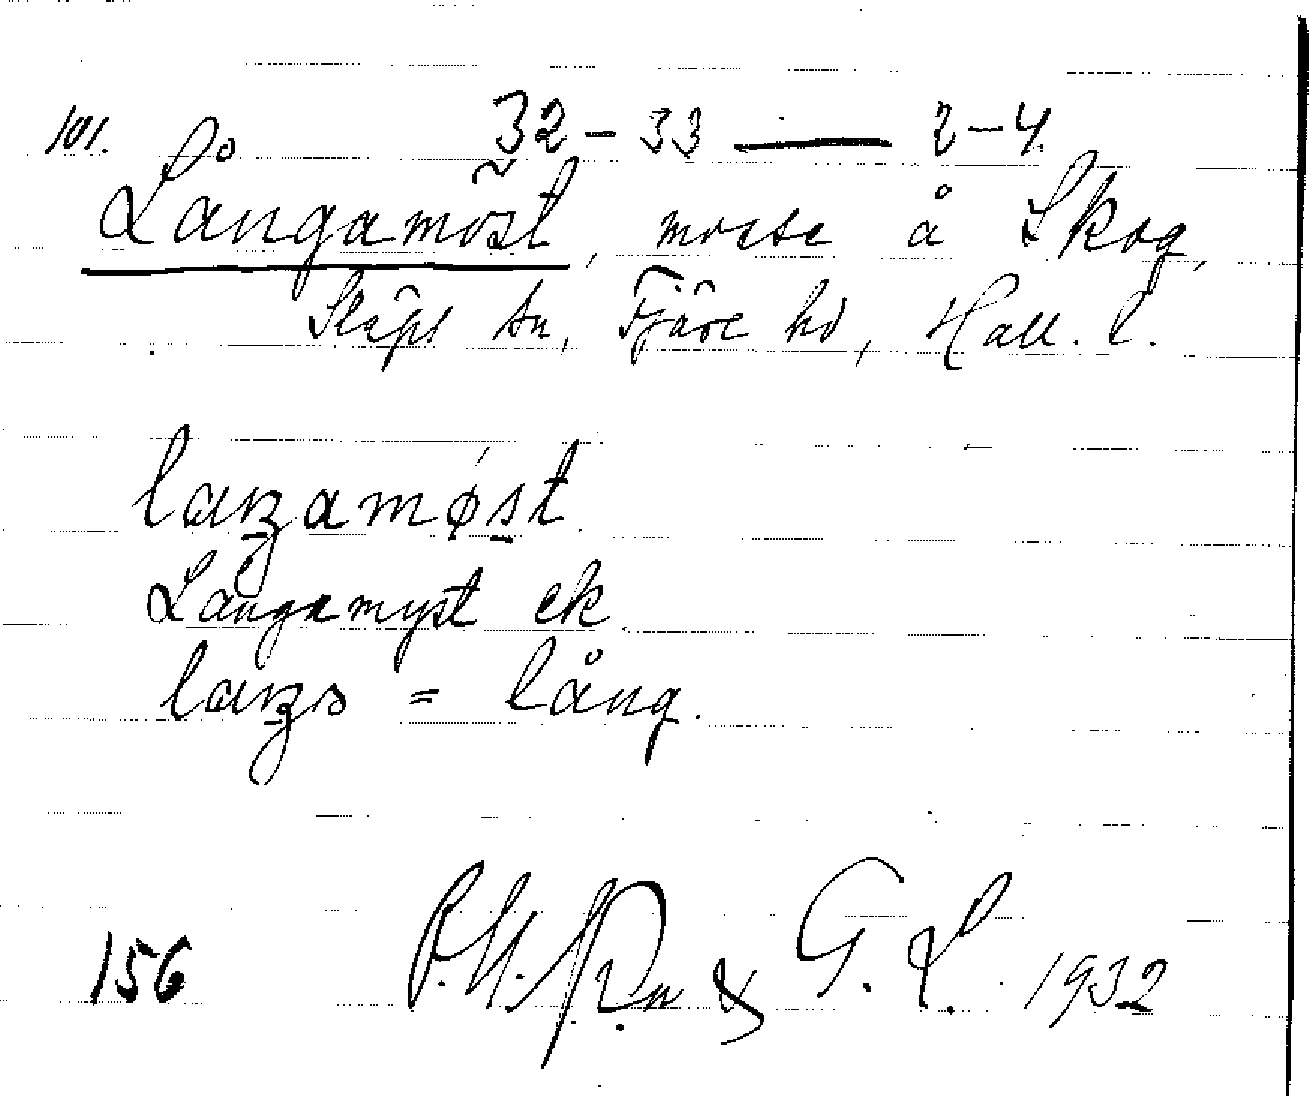 101. 32-33 — 2-4.
Långamöst, mosse å Skog,
Släps sn, Fjäre hd, Hall. l.
laŋamøst.
Långamyst ek.
= lång.
156 & G. L. 1932